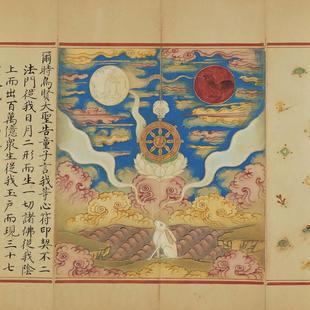 爾時烏賢大聖告童子言我菩心符印契不二
法門從我日月二形而生一切諸佛從我陰
上而出百萬億衆生從我玉戶而現三十七